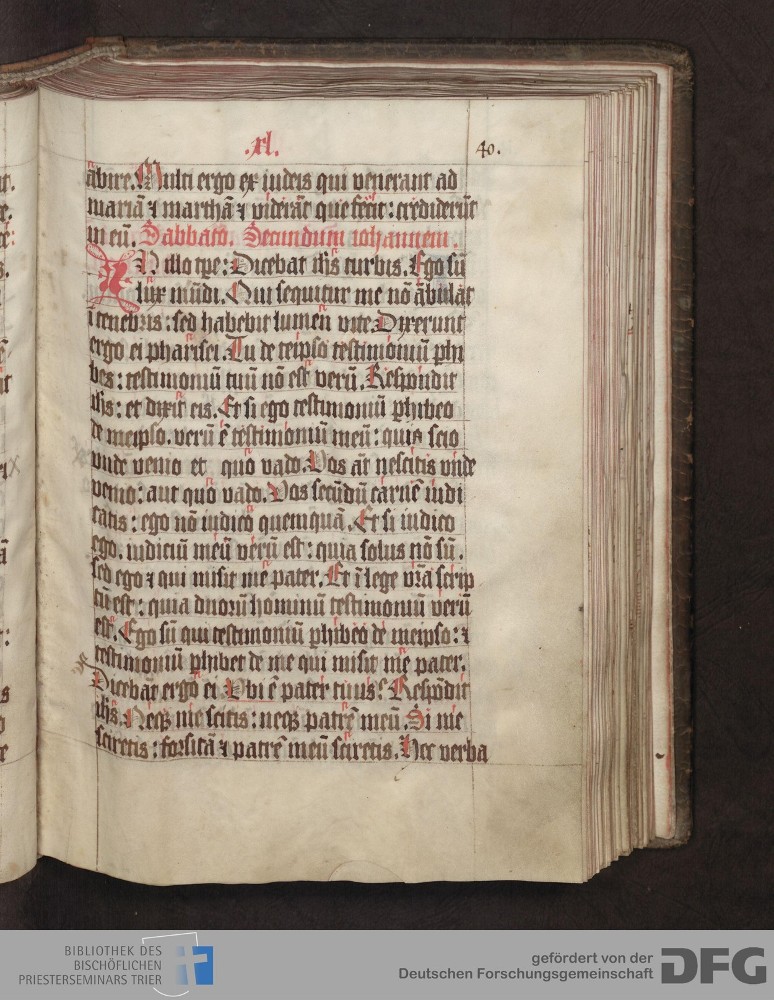 .xl.
40.
ābire. Multi ergo ex iudeis qui venerant ad
mariā ⁊ marthā ⁊ viderāt que fecit: crediderūt
in eū. Sabbato. Secundum iohannem.
IN illo tpe: Dicebat ihs turbis. Ego sū
lux mūdi. Qui sequitur me nō ābulat
ī tenebris: sed habebit lumen vite. Dixerunt
ergo ei pharisei. Tu de teipso testimoniū phi
bes: testimoniū tuū nō est verū. Respondit
ihs: et dixit eis. Et si ego testimoniū phibeo
de meipso. verū ē testimoniū meū: quia scio
vnde venio et quo vado. Vos āt nescitis vnde
venio: aut quo vado. Vos secūdū carnē iudi
catis: ego nō iudico quemquā. Et si iudico
ego. iudiciū meū verū est: quia solus nō sū.
sed ego ⁊ qui misit me pater. Et ī lege vr̄a scrip
tū est: quia duorū hominū testimoniū verū
est. Ego sū qui testimoniū phibeo de meipso: ⁊
testimoniū phibet de me qui misit me pater.
Dicebāt ergo ei. Vbi ē pater tuus? Respōdit
ihs. Neqꝫ me scitis: neqꝫ patrē meū. Si me
sciretis: forsitā ⁊ patrē meū sciretis. Hec verba
BIBLIOTHEK DES
BISCHÖFLICHEN
PRIESTERSEMINARS TRIER
gefördert von der
Deutschen Forschungsgemeinschaft
DFG